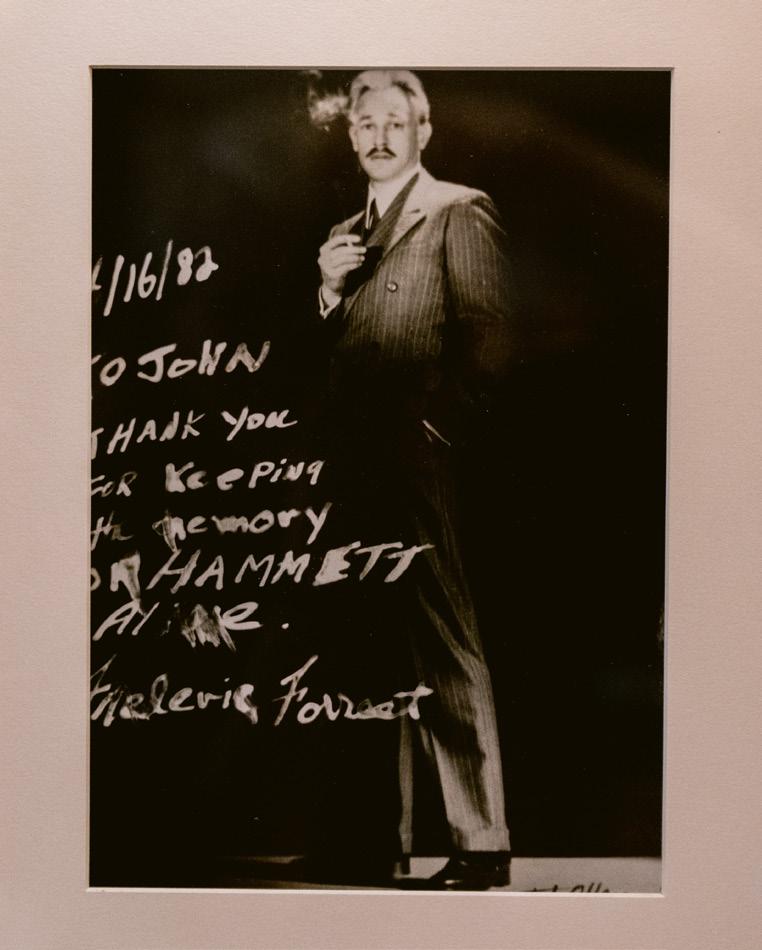 /16/82
TO JOHN
THANK YOU
FOR KeePing
the memory
OF HAMMETT
Alive.
Forrest